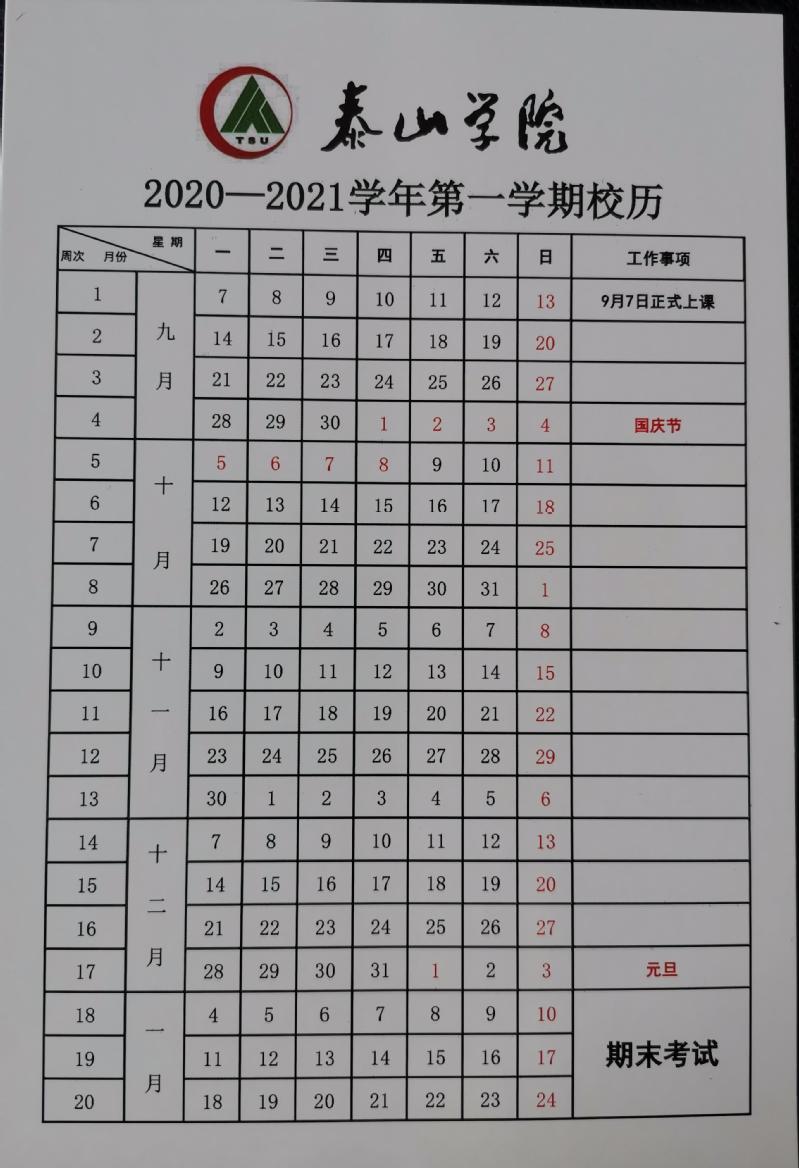 TSU
泰山学院
2020—2021学年第一学期校历
周次 月份 星期 一 二 三 四 五 六 日 工作事项
1 九月 7 8 9 10 11 12 13 9月7日正式上课
2 14 15 16 17 18 19 20
3 21 22 23 24 25 26 27
4 28 29 30 1 2 3 4 国庆节
5 十月 5 6 7 8 9 10 11
6 12 13 14 15 16 17 18
7 19 20 21 22 23 24 25
8 26 27 28 29 30 31 1
9 十一月 2 3 4 5 6 7 8
10 9 10 11 12 13 14 15
11 16 17 18 19 20 21 22
12 23 24 25 26 27 28 29
13 30 1 2 3 4 5 6
14 十二月 7 8 9 10 11 12 13
15 14 15 16 17 18 19 20
16 21 22 23 24 25 26 27
17 28 29 30 31 1 2 3 元旦
18 一月 4 5 6 7 8 9 10 期末考试
19 11 12 13 14 15 16 17
20 18 19 20 21 22 23 24